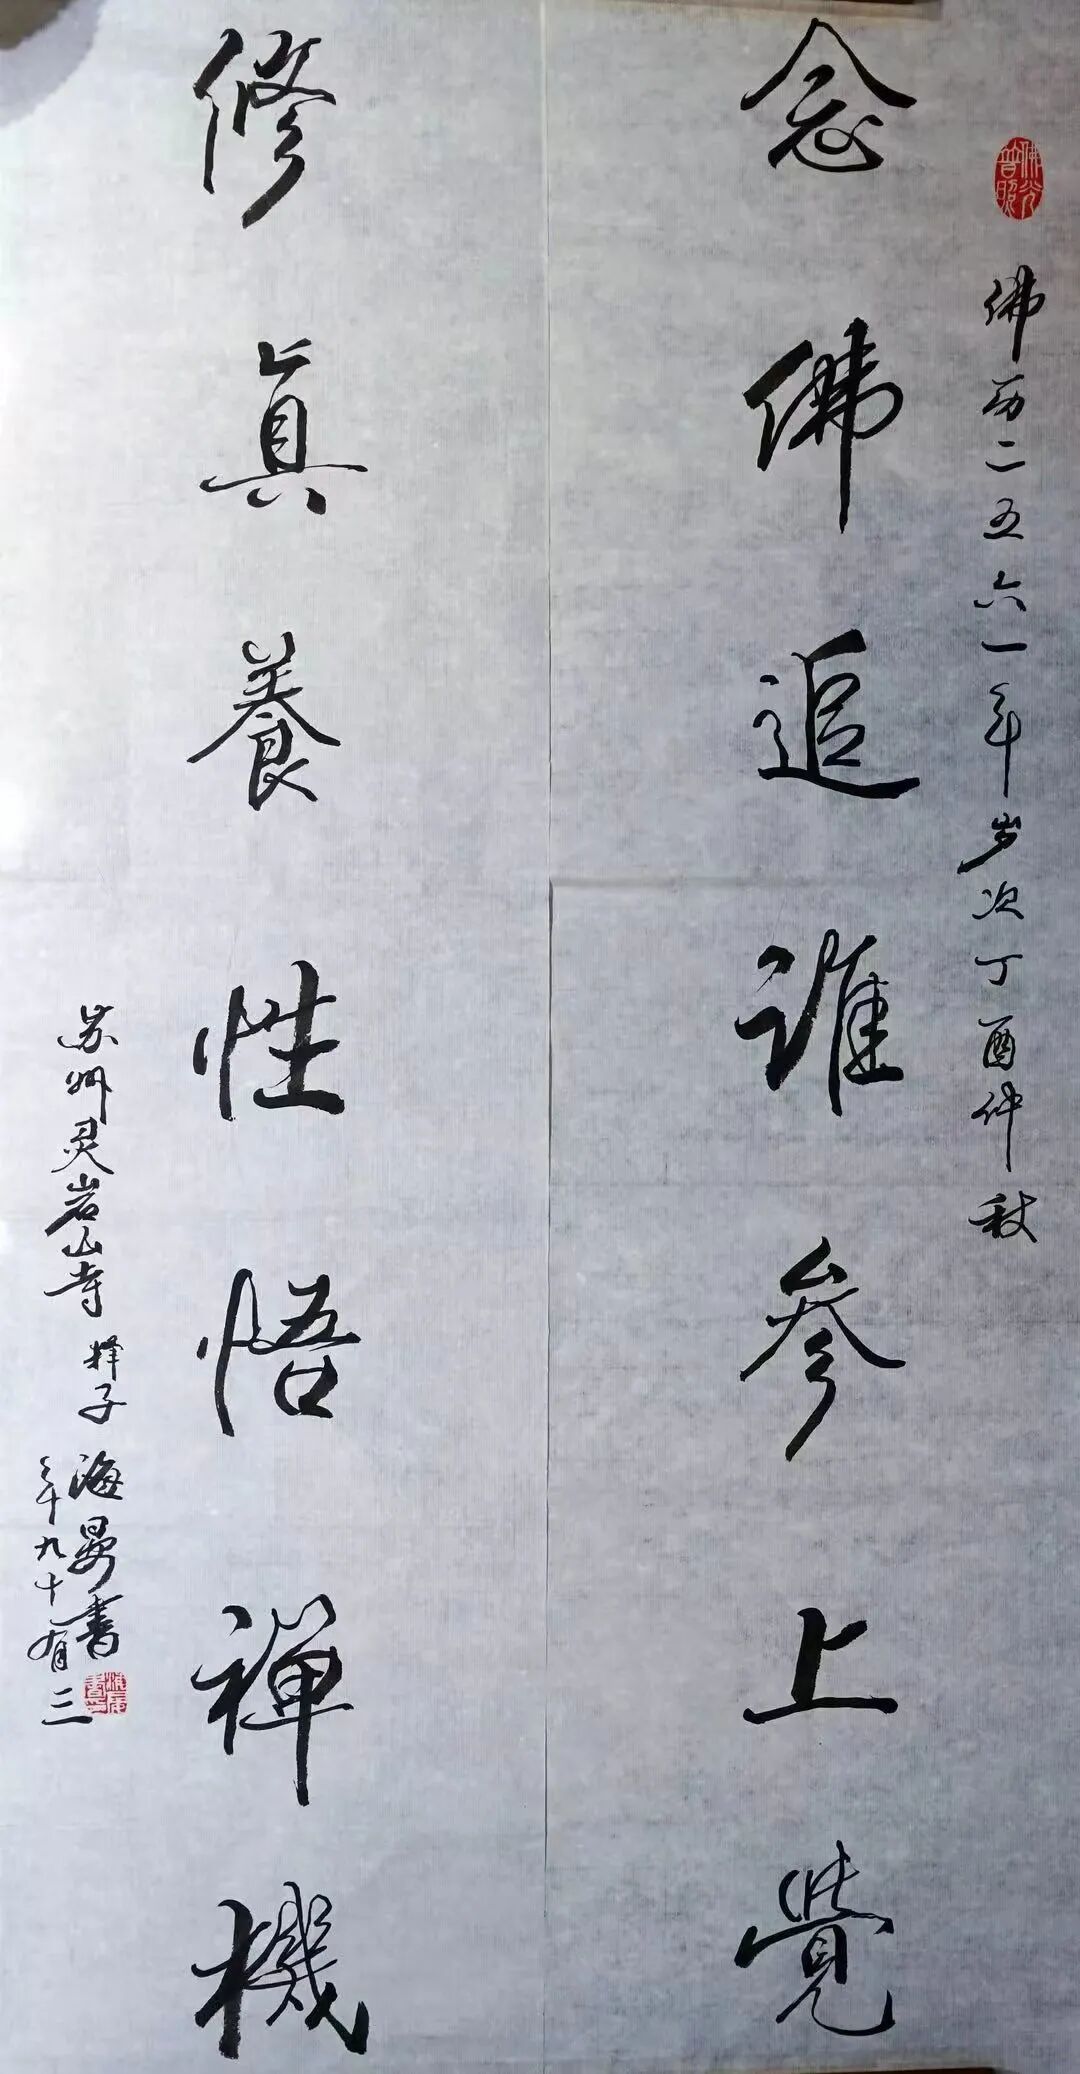 佛光普照
佛历二五六一年岁次丁酉仲秋
念佛追谁参上觉
修真養性悟禅機
苏州灵岩山寺释子海晏书
年九十有三